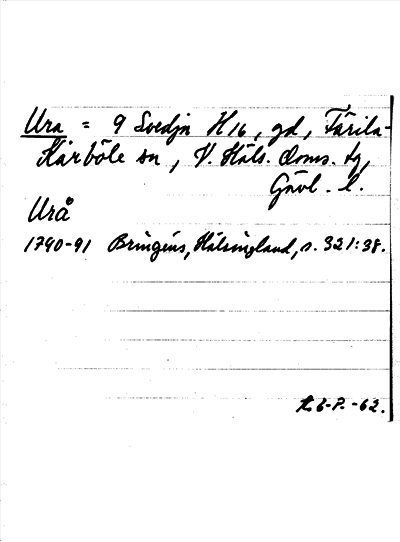 Ura = 9 Svedja H16, gd, Färila-
Kårböle sn, V. Häls. Doms. tg,
Gävl. l.
Urå
1790-91 Bringéus, Hälsingland, s. 321:38.
-P. -62.